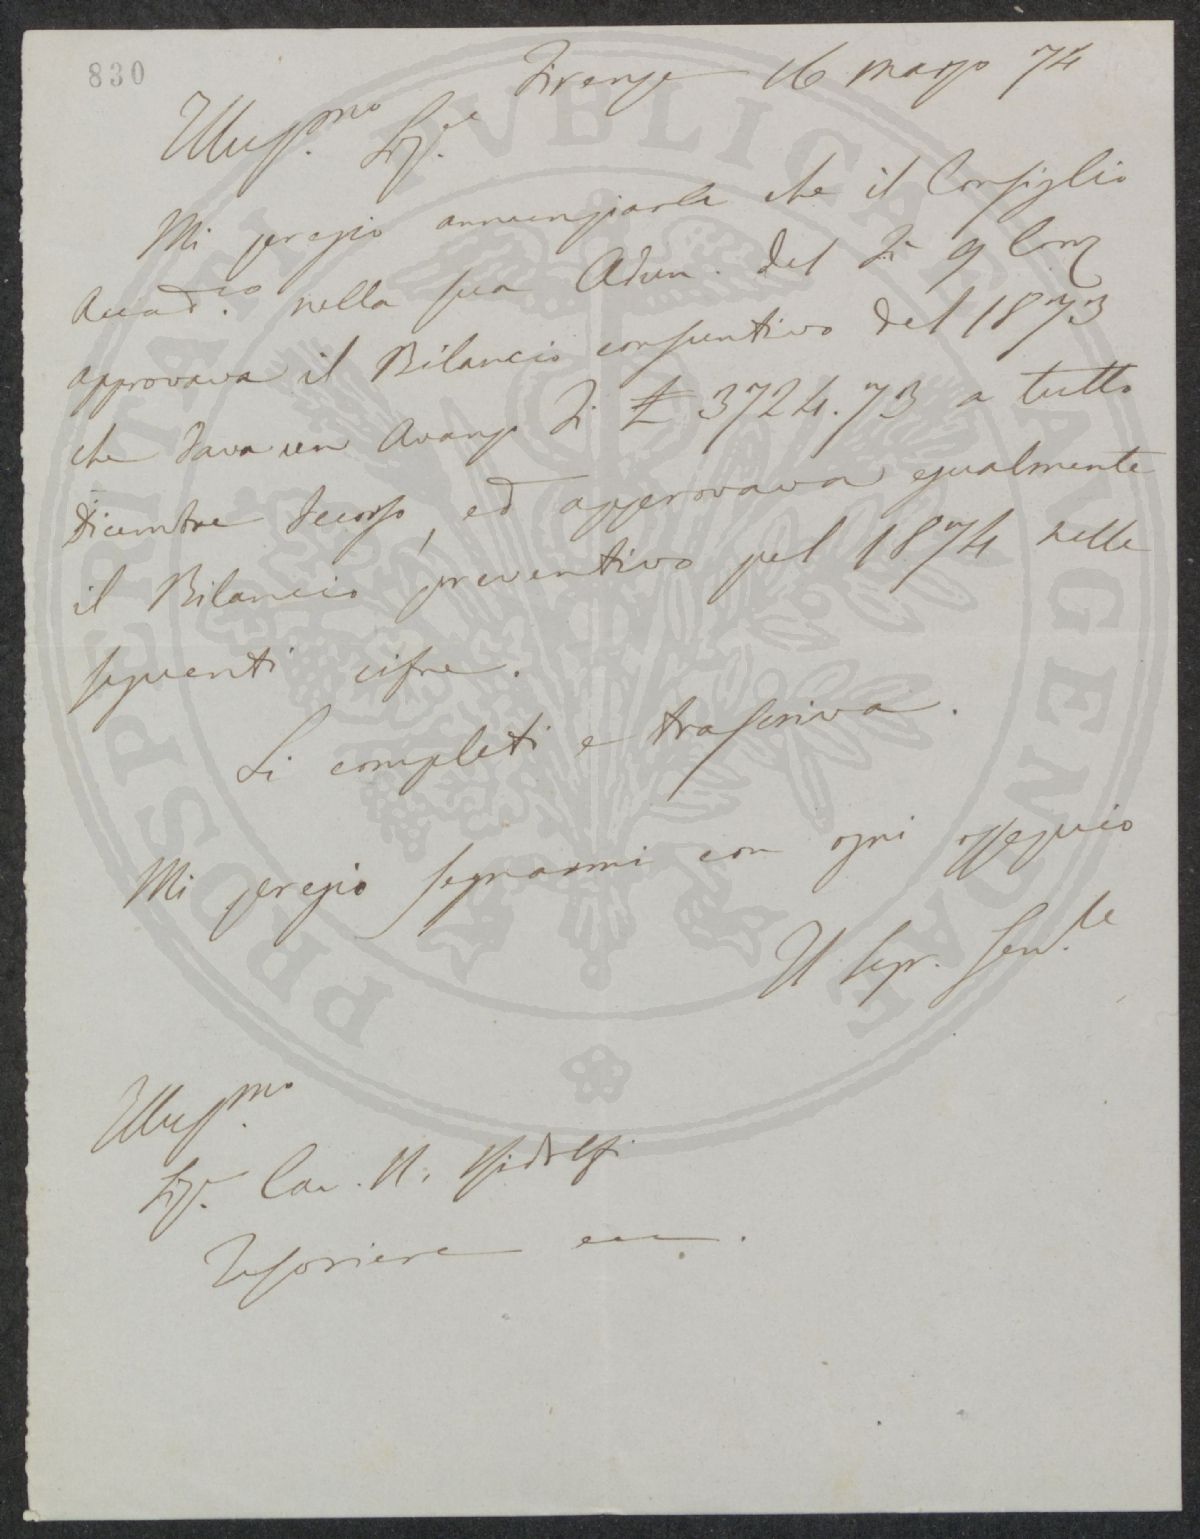 830
Firenze 16 marzo 74
Illus.mo Sig.re
Mi pregio annunziarle che il Consiglio
Accad.co nella sua Adun. del dì 9 Corr
approvava il Bilancio consuntivo del 1873
che dava un Avanzo di £ 3724.73 a tutto
Dicembre decorso, ed approvava egualmente
il Bilancio preventivo pel 1874 nelle
seguenti cifre.
Si completi e trascriva.
Mi pregio segnarmi con ogni ossequio
Il Segr. Gen.le
Illus.mo
Sig. Cav. N. Ridolfi
Tesoriere ecc.
PROSPERITATI PVBLICAE AVGENDAE